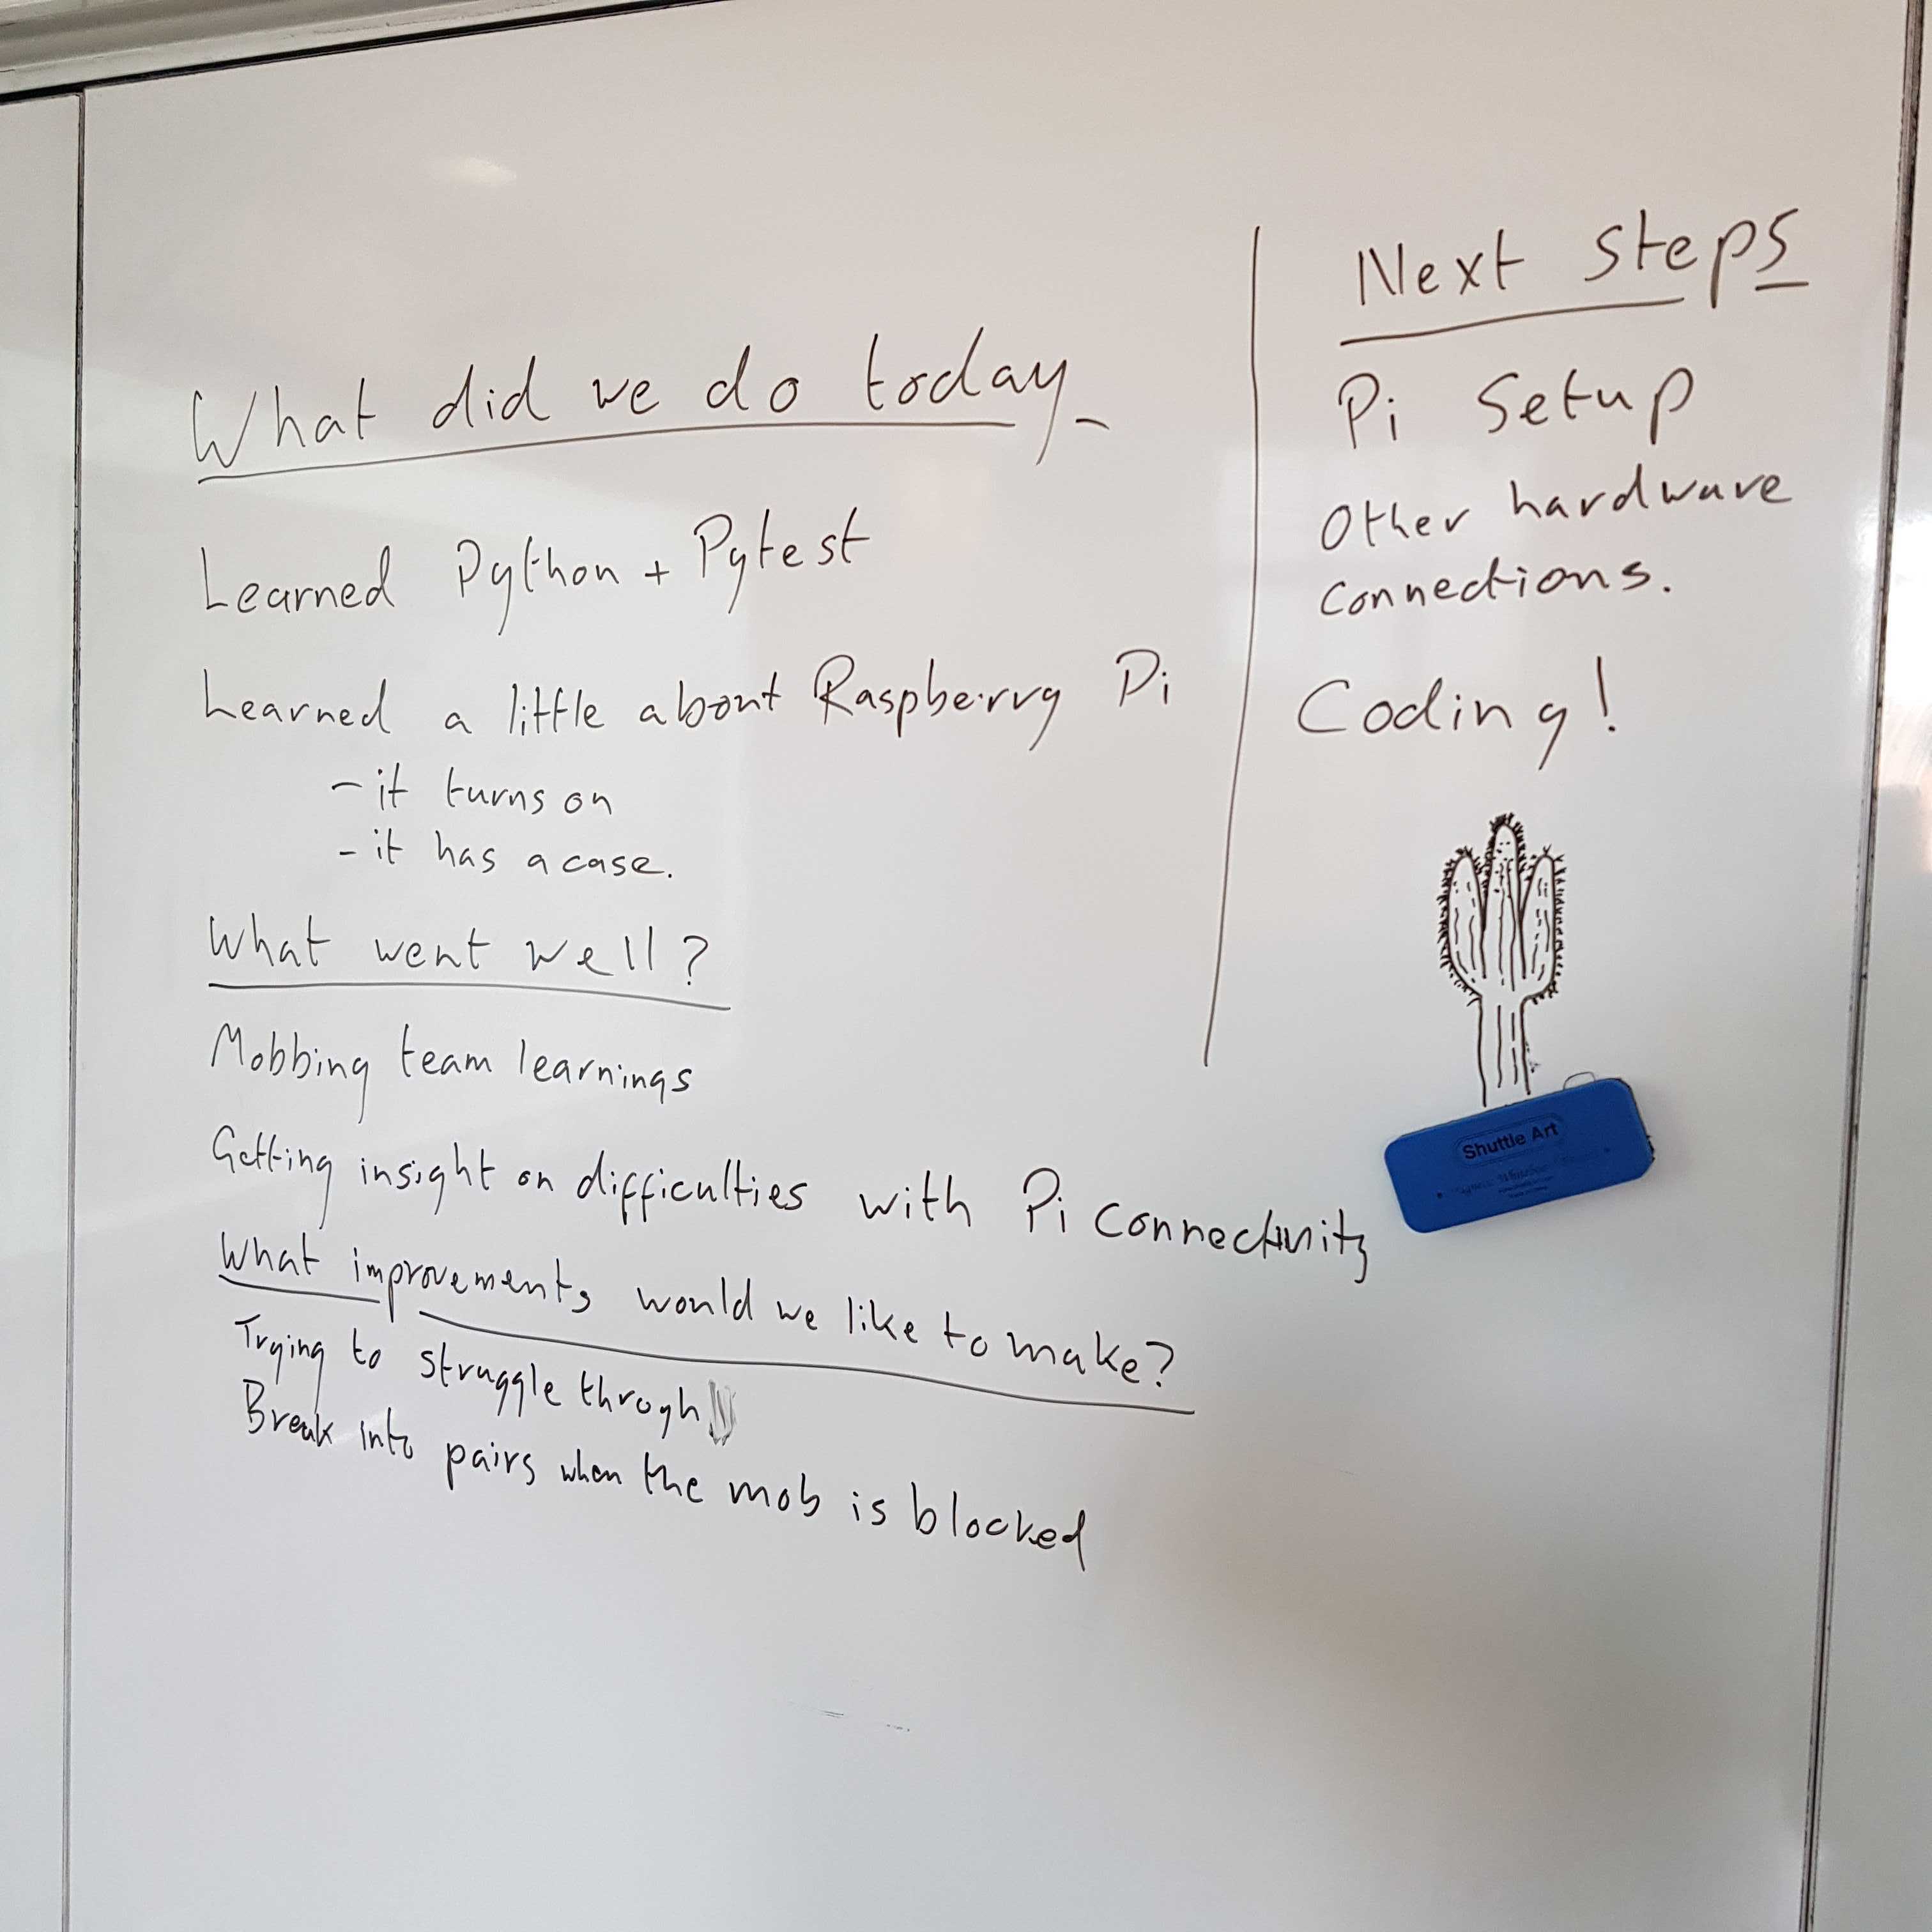 What did we do today
Learned Python + Pytest
Learned a little about Raspberry Pi
- it turns on
- it has a case.
What went well?
Mobbing team learnings
Getting insight on difficulties with Pi connectivity
What improvements would we like to make?
Trying to struggle throgh
Break into pairs when the mob is blocked
Next steps
Pi Setup
Other hardware
connections.
Coding!
Shuttle Art